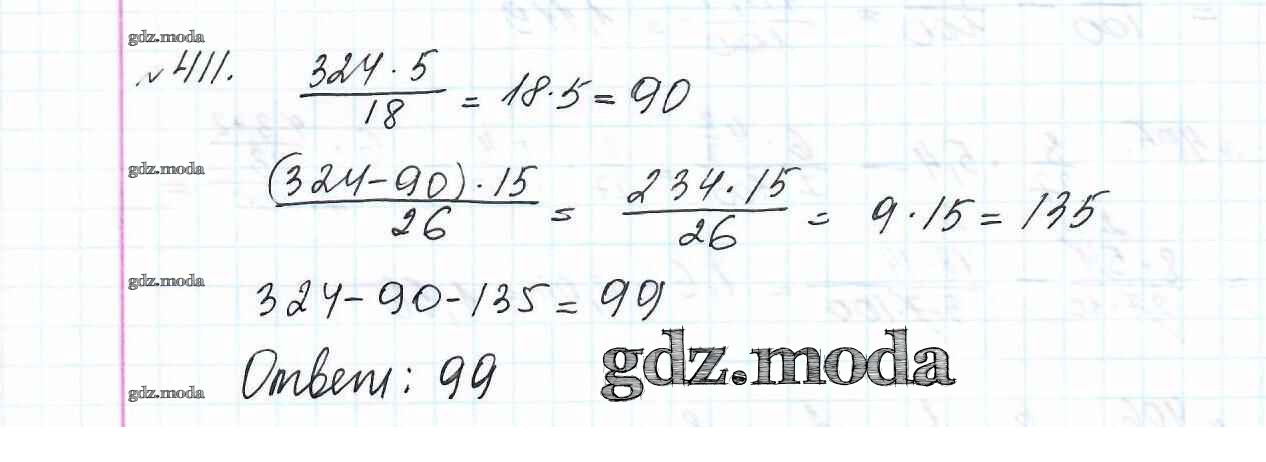 gdz.moda
№ 411. 324·5/18 = 18·5 = 90
gdz.moda
(324-90)·15/26 = 234·15/26 = 9·15 = 135
gdz.moda
324-90-135 = 99
gdz.moda
gdz.moda
Ответ: 99